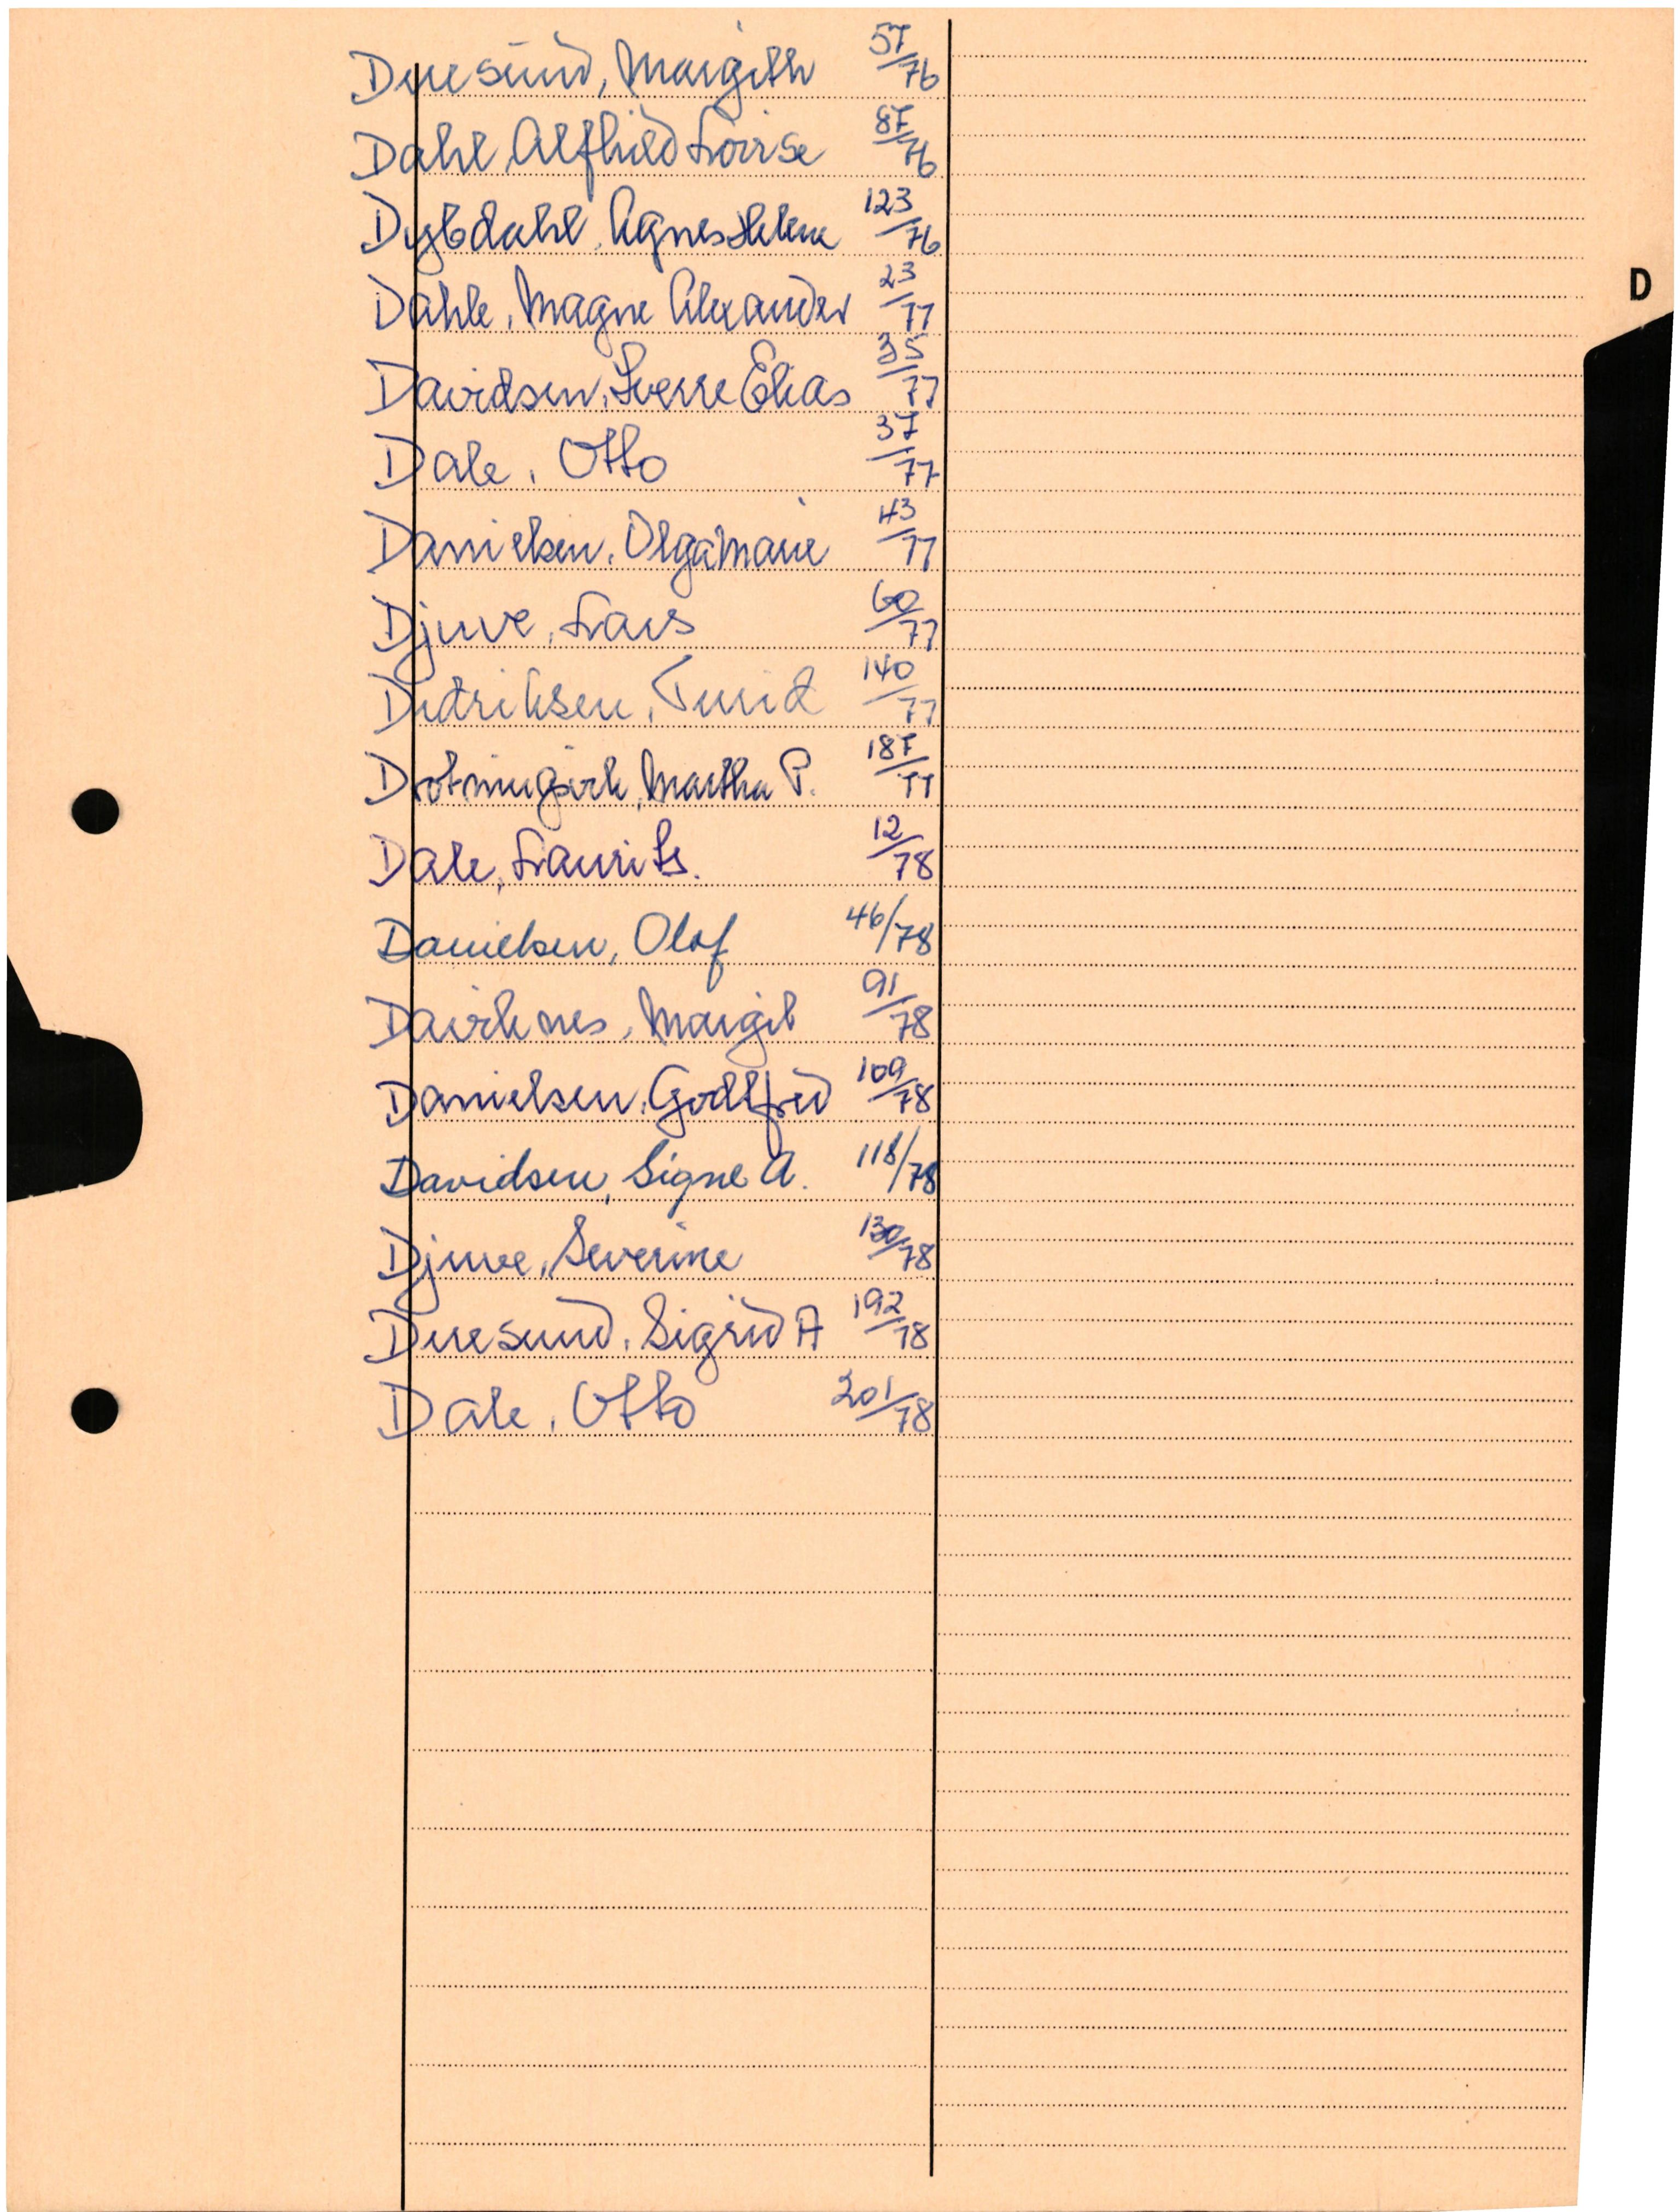 Duesund, Margith 57/76
Dahl, Alfhild Lovise 87/76
Dybdahl, Agnes Helene 123/76
Dahle, Magne Alexander 23/77
D
Davidsen, Sverre Elias 35/77
Dale, Otto 37/77
Danielsen, Olga Marie 43/77
Djuve, Lars 60/77
Didriksen, Turid 140/77
Drotningsvik, Martha P. 187/77
Dale, Laurits. 12/78
Danielsen, Olaf 46/78
Davidsen, Signe A. 118/78
Margit 91/78
Danielsen, Godtfred 109/78
Djuve, Severine 130/78
Duesund, Sigrid A 192/78
Dale, Otto 201/78